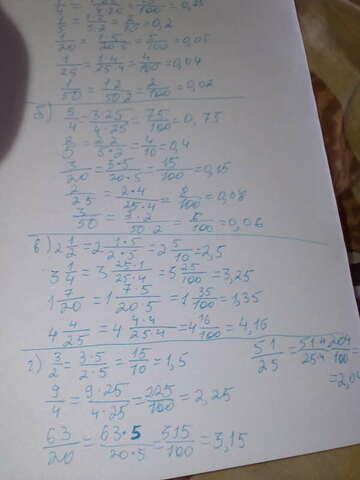 1/5 = 1·2/5·2 = 2/10 = 0,2
1/20 = 1·5/20·5 = 5/100 = 0,05
1/25 = 1·4/25·4 = 4/100 = 0,04
1/50 = 1·2/50·2 = 2/100 = 0,02
б) 3/4 = 3·25/4·25 = 75/100 = 0,75
2/5 = 2·2/5·2 = 4/10 = 0,4
3/20 = 3·5/20·5 = 15/100 = 0,15
2/25 = 2·4/25·4 = 8/100 = 0,08
3/50 = 3·2/50·2 = 6/100 = 0,06
в) 2 1/2 = 2 1·5/2·5 = 2 5/10 = 2,5
3 1/4 = 3 25·1/25·4 = 3 25/100 = 3,25
1 7/20 = 1 7·5/20·5 = 1 35/100 = 1,35
4 4/25 = 4 4·4/25·4 = 4 16/100 = 4,16
г) 3/2 = 3·5/2·5 = 15/10 = 1,5
51/25 = 51·4/25·4 = 204/100 =
= 2,04
9/4 = 9·25/4·25 = 225/100 = 2,25
63/20 = 63·5/20·5 = 315/100 = 3,15